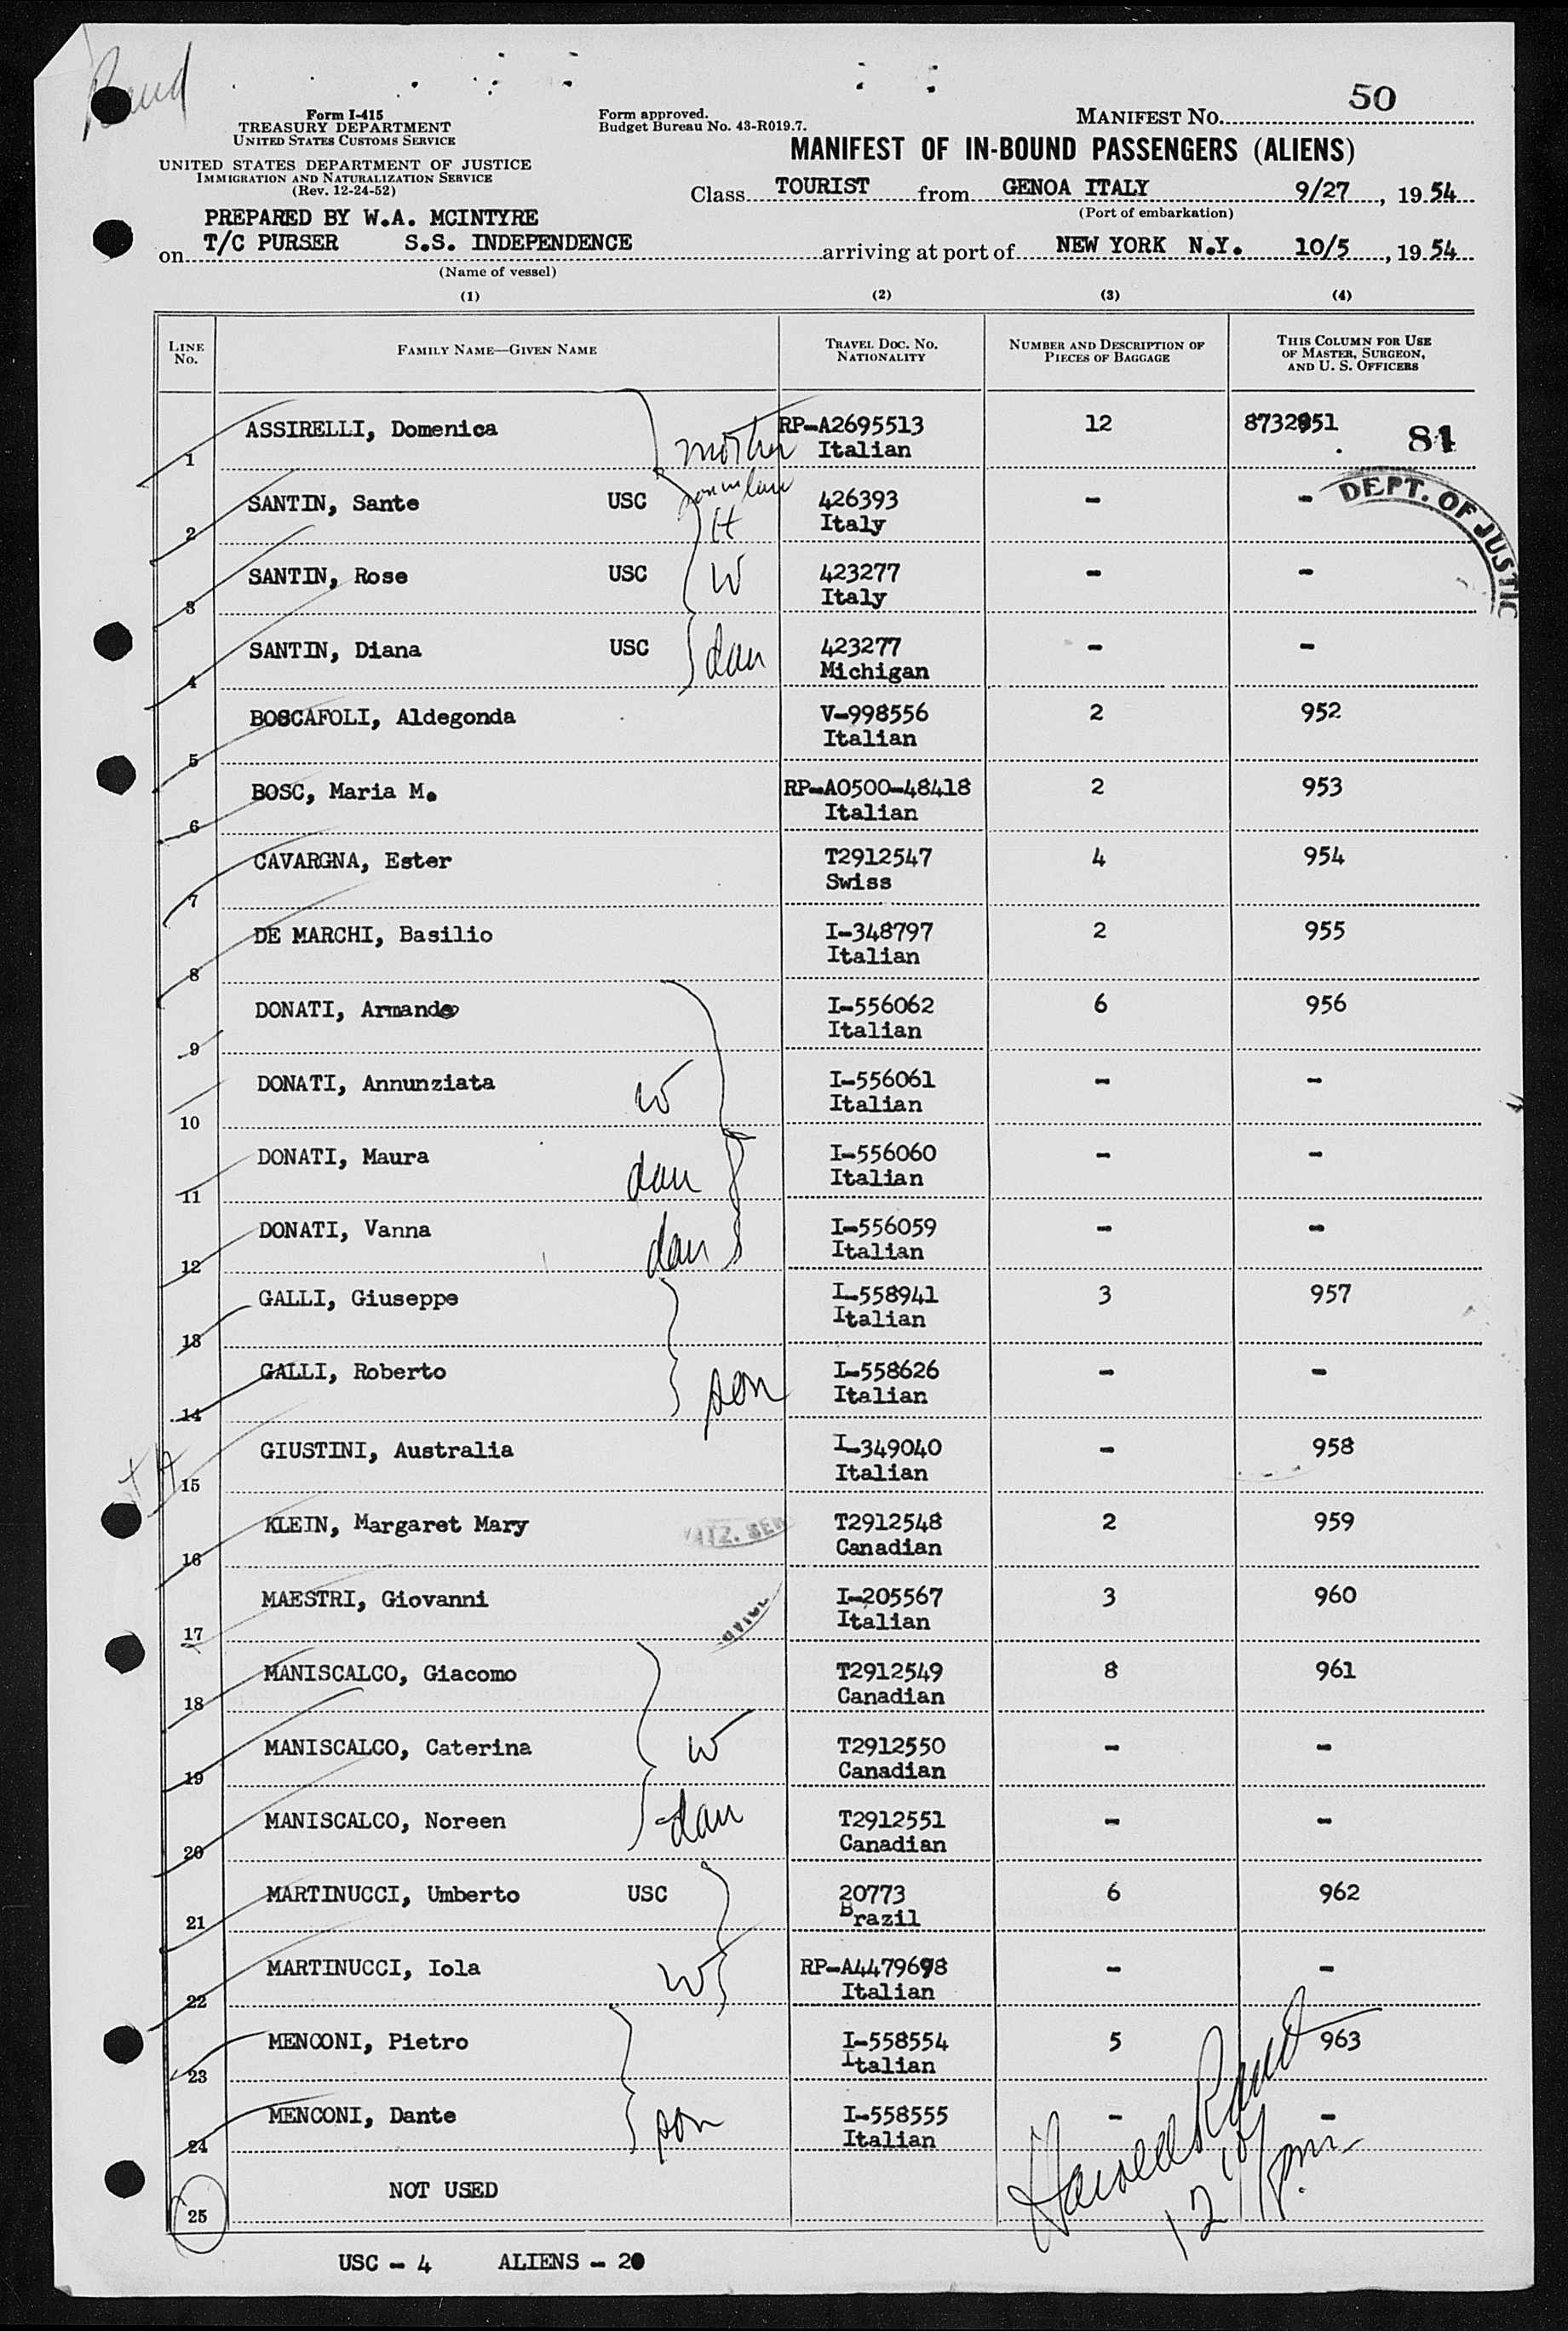 Rand
Form I-415
TREASURY DEPARTMENT
UNITED STATES CUSTOMS SERVICE
UNITED STATES DEPARTMENT OF JUSTICE
IMMIGRATION AND NATURALIZATION SERVICE
(Rev. 12-24-52)
Form approved.
Budget Bureau No. 43-R019.7.
MANIFEST NO. 50
MANIFEST OF IN-BOUND PASSENGERS (ALIENS)
Class TOURIST from GENOA ITALY 9/27, 1954
(Port of embarkation)
PREPARED BY W.A. MCINTYRE
on T/C PURSER S.S. INDEPENDENCE arriving at port of NEW YORK N.Y. 10/5, 1954
(Name of vessel)
(1) (2) (3) (4)
LINE No. FAMILY NAME—GIVEN NAME TRAVEL DOC. NO. NATIONALITY NUMBER AND DESCRIPTION OF PIECES OF BAGGAGE THIS COLUMN FOR USE OF MASTER, SURGEON, AND U. S. OFFICERS
1 ASSIRELLI, Domenica mother RP-A2695513 Italian 12 8732951 84
DEPT. OF JUSTIC
2 SANTIN, Sante USC son in law H 426393 Italy - -
3 SANTIN, Rose USC W 423277 Italy - -
4 SANTIN, Diana USC dau 423277 Michigan - -
5 BOSCAFOLI, Aldegonda V-998556 Italian 2 952
6 BOSC, Maria M. RP-A0500-48418 Italian 2 953
7 CAVARGNA, Ester T2912547 Swiss 4 954
8 DE MARCHI, Basilio I-348797 Italian 2 955
9 DONATI, Armando I-556062 Italian 6 956
10 DONATI, Annunziata W I-556061 Italian - -
11 DONATI, Maura dau I-556060 Italian - -
12 DONATI, Vanna dau I-556059 Italian - -
13 GALLI, Giuseppe I-558941 Italian 3 957
14 GALLI, Roberto son I-558626 Italian - -
15 GIUSTINI, Australia I-349040 Italian - 958
16 KLEIN, Margaret Mary T2912548 Canadian 2 959
17 MAESTRI, Giovanni I-205567 Italian 3 960
18 MANISCALCO, Giacomo T2912549 Canadian 8 961
19 MANISCALCO, Caterina W T2912550 Canadian - -
20 MANISCALCO, Noreen dau T2912551 Canadian - -
21 MARTINUCCI, Umberto USC 20773 Brazil 6 962
22 MARTINUCCI, Iola W RP-A4479698 Italian - -
23 MENCONI, Pietro I-558554 Italian 5 963
24 MENCONI, Dante son I-558555 Italian - -
25 NOT USED
Harold Rand
USC - 4 ALIENS - 20